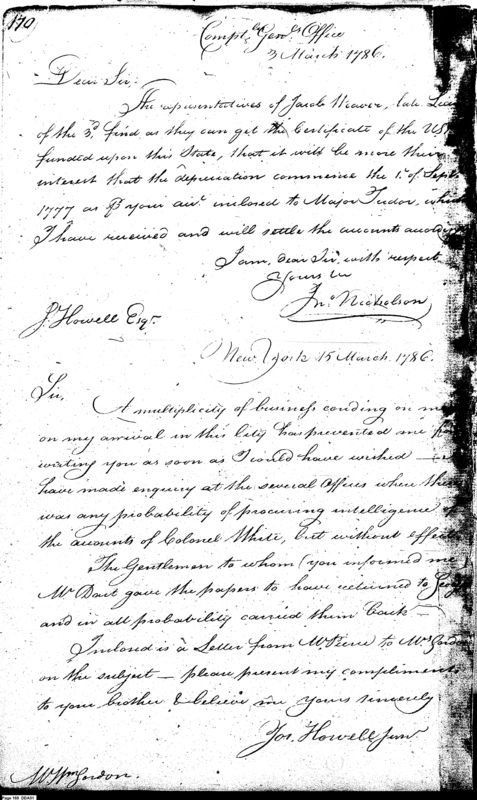 170
Compt. Genls. Office
3 March 1786.
Dear Sir.
The representatives of Jacob Weaver, late
of the 3d. find as they can get the Certificate of the US
funded upon this State, that it will be more their
interest that the depreciation commence the 1st. of Sept
1777 as your inclosed to Major Tudor, which
I have received and will settle the accounts
I am, dear Sir, with respect
Yours &c
Jno. Nicholson
J. Howell Esqr.
New York 15 March 1786.
Sir,
A multiplicity of business crouding on me
on my arrival in this City has prevented me
writing you as soon as I could have wished —
have made enquiry at the several Offices where there
was any probability of procuring intelligence of
the accounts of Colonel White, but without effect
The Gentlemen to whom (you informed me)
Mr Dart gave the papers to have returned to
and in all probability carried them back —
Inclosed is a Letter from Mr Pierce to Mrs Gordon
on the subject — please present my compliments
to your brother & believe me yours sincerely
Jos. Howell Junr.
Mr Wm Gordon.